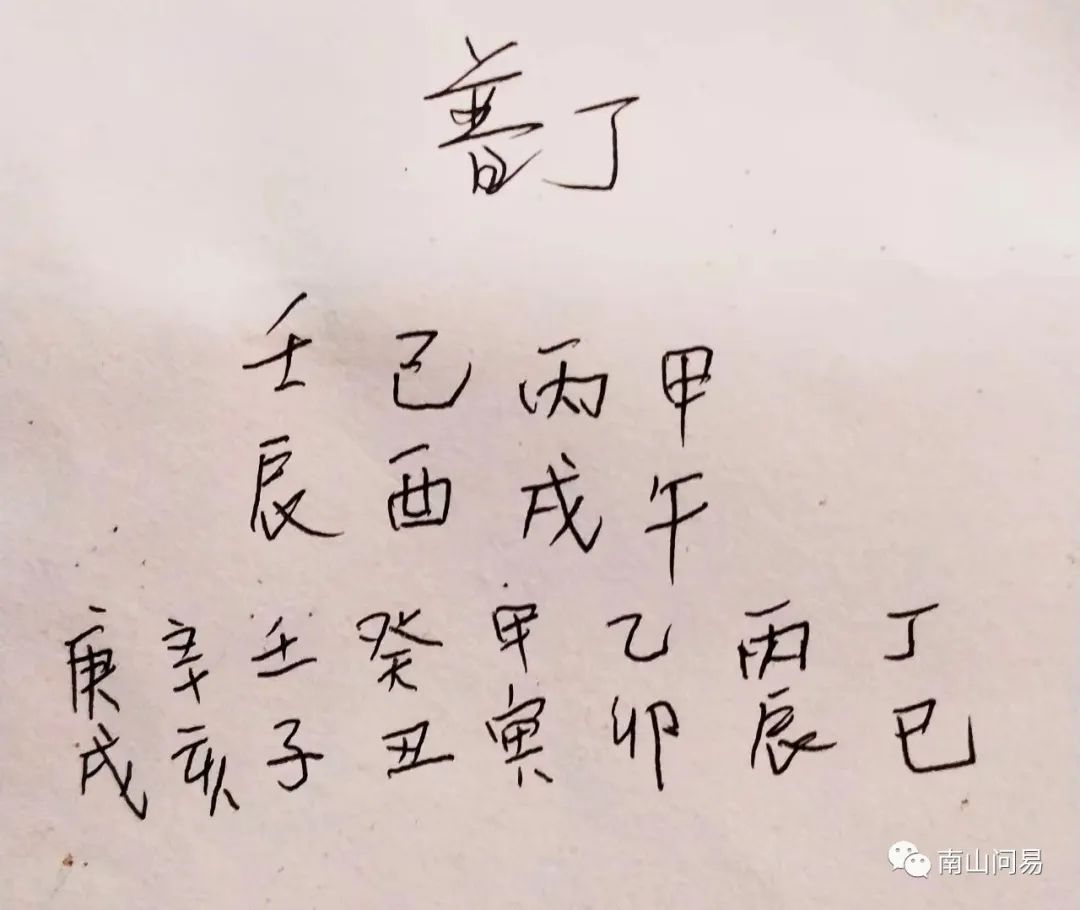 普丁
壬 己 丙 甲
辰 酉 戌 午
庚 辛 壬 癸 甲 乙 丙 丁
戌 亥 子 丑 寅 卯 辰 巳
南山问易